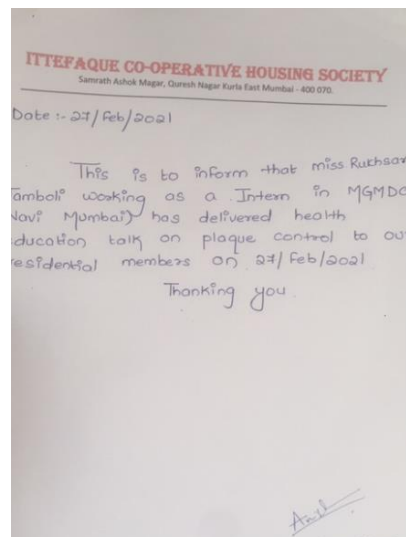 ITTEFAQUE CO-OPERATIVE HOUSING SOCIETY
Samrath Ashok Magar, Quresh Nagar Kurla East Mumbai - 400 070.
Date :- 27/Feb/2021
This is to inform that miss. Rukhsar
Tamboli working as a Intern in MGMDC
Navi Mumbai) has delivered health
education talk on plaque control to our
residential members on 27/Feb/2021
Thanking you